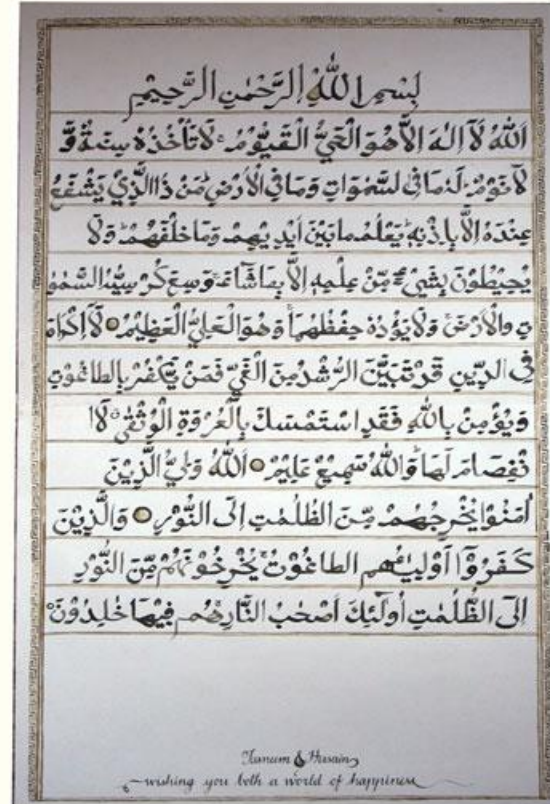 بِسْمِ اللّٰهِ الرَّحْمٰنِ الرَّحِيْمِ
اَللّٰهُ لَآ اِلٰهَ اِلَّا هُوَ الْحَيُّ الْقَيُّوْمُ لَا تَأْخُذُهٗ سِنَةٌ وَّ
لَا نَوْمٌ لَهٗ مَا فِى لسَّمٰوَاتِ وَمَا فِى الْاَرْضِ مَنْ ذَا الَّذِيْ يَشْفَعُ
عِنْدَهٗ اِلَّا بِاِذْنِهٖ يَعْلَمُ مَا بَيْنَ اَيْدِيْهِمْ وَمَا خَلْفَهُمْ وَلَا
يُحِيْطُوْنَ بِشَيْءٍ مِّنْ عِلْمِهٖ اِلَّا بِمَا شَآءَ وَسِعَ كُرْسِيُّهُ السَّمٰوٰ
تِ وَالْاَرْضَ وَلَا يَؤُدُهٗ حِفْظُهُمَا وَهُوَ الْعَلِيُّ الْعَظِيْمُ لَآ اِكْرَاهَ
فِى الدِّيْنِ قَدْ تَبَيَّنَ الرُّشْدُ مِنَ الْغَيِّ فَمَنْ يَّكْفُرْ بِالطَّاغُوْتِ
وَيُؤْمِنْ بِاللّٰهِ فَقَدِ اسْتَمْسَكَ بِالْعُرْوَةِ الْوُثْقٰى لَا ا
نْفِصَامَ لَهَا وَاللّٰهُ سَمِيْعٌ عَلِيْمٌ اَللّٰهُ وَلِيُّ الَّذِيْنَ
اٰمَنُوْا يُخْرِجُهُمْ مِّنَ الظُّلُمٰتِ اِلَى النُّوْرِ وَالَّذِيْنَ
كَفَرُوْٓا اَوْلِيٰٓـُٔهُم الطَاغُوْتُ يُخْرِخُوْنَهُمْ مِّنَ النُّوْرِ
اِلَى الظُّلُمٰتِ اُولٰٓئِكَ اَصْحٰبُ النَّارِ هُمْ فِيْهَا خٰلِدُوْنَ
Tanum & Husain
wishing you both a world of happiness